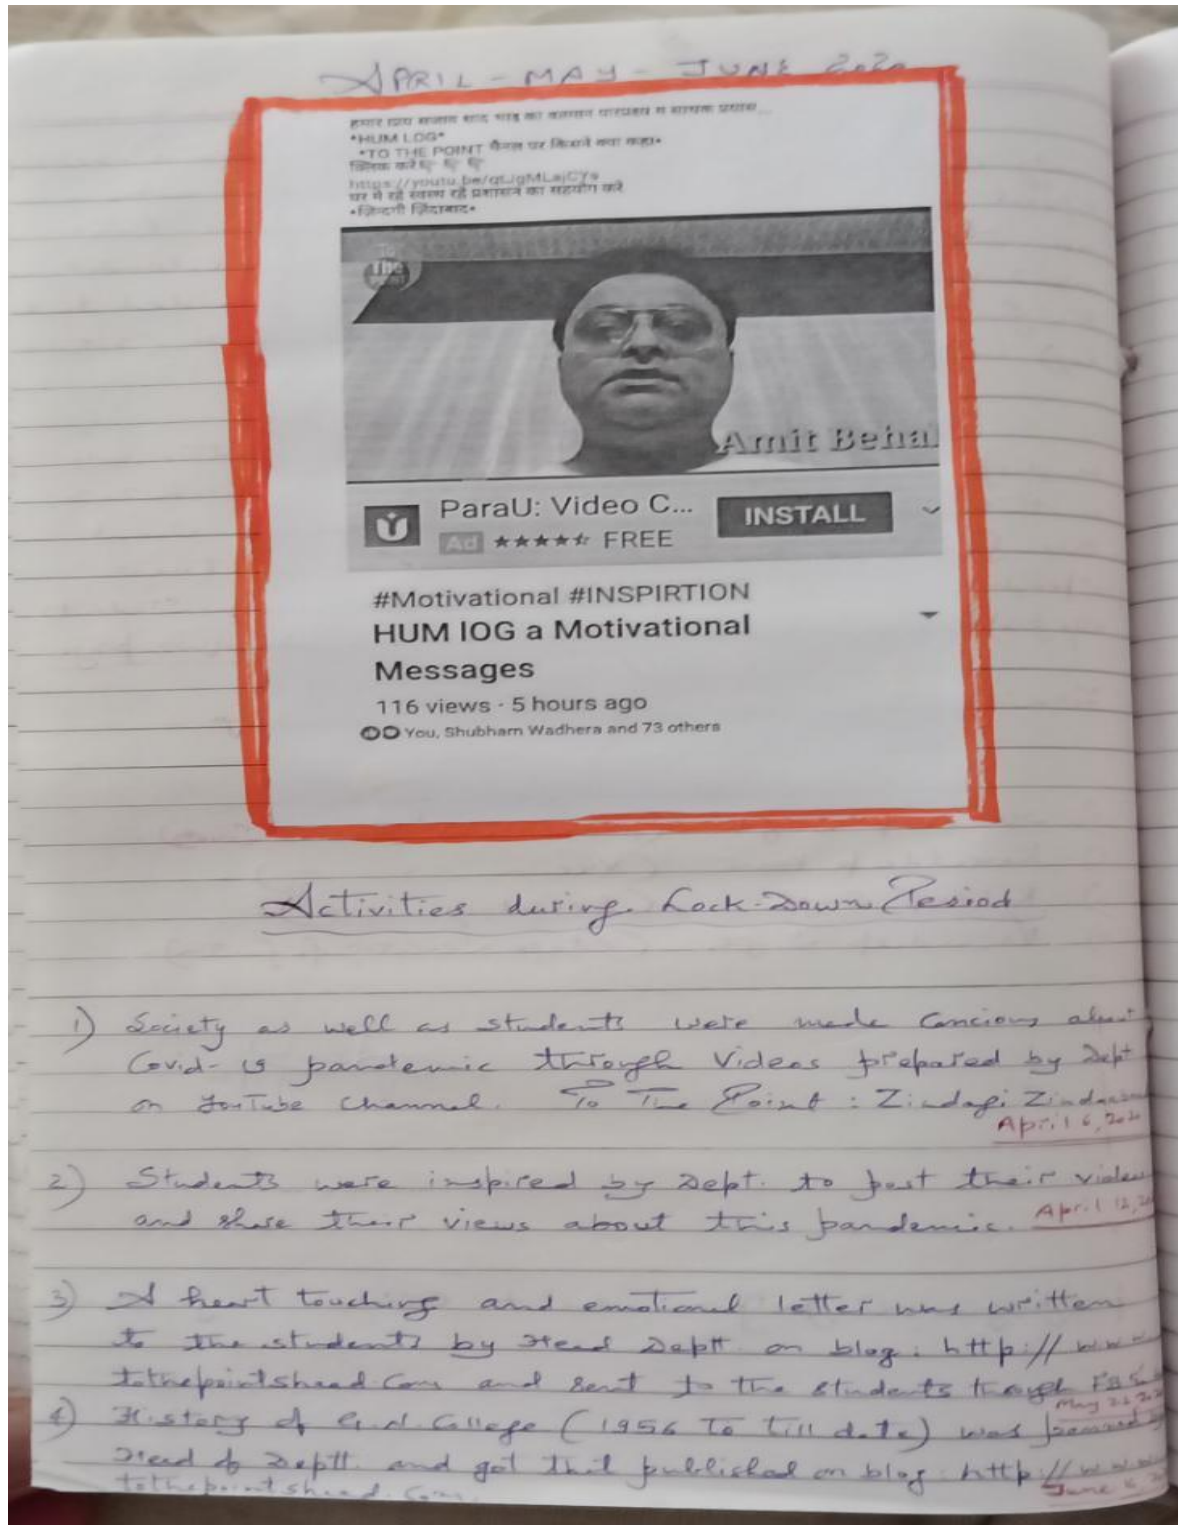 APRIL - MAY - JUNE 2020
*HUM LOG*
*TO THE POINT चैनल पर किसने क्या कहा*
क्लिक करें
घर में रहें स्वस्थ रहें प्रशासन का सहयोग करें
*ज़िन्दगी ज़िंदाबाद*
The
Amit Behal
ParaU: Video C... INSTALL
Ad FREE
#Motivational #INSPIRTION
HUM lOG a Motivational
Messages
116 views · 5 hours ago
You, Shubham Wadhera and 73 others
Activities during Lock-Down Period
1) Society as well as students were made Concious about
Covid-19 pandemic through Videos prepared by Dept
on YouTube Channel. To The Point : Zindagi
April 6, 2020
2) Students were inspired by Dept. to post their
and share their views about this pandemic. April 12,
3) A heart touching and emotional letter was written
to the students by Head Deptt. on blog: http://www
tothepointshaad.com and sent to the students through
May
4) History of G.N. College (1956 To till date) was penned
Head of Deptt. and got that published on blog: http://www
tothepointshaad.com. June